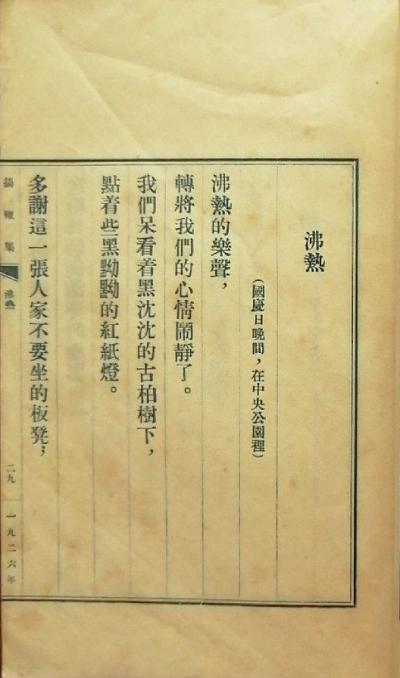 沸熱
(國慶日晚間，在中央公園裡)
沸熱的樂聲，
轉將我們的心情鬧靜了。
我們呆看着黑沈沈的古柏樹下，
點着些黑黝黝的紅紙燈。
多謝這一張人家不要坐的板凳，
揚鞭集 沸熱 二九 一九二六年